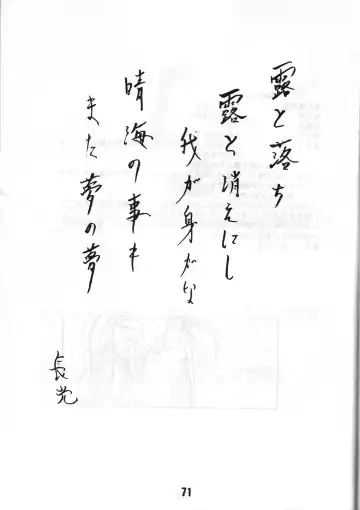 露と落ち
露と消えにし
我が身かな
晴海の事も
また夢の夢
71